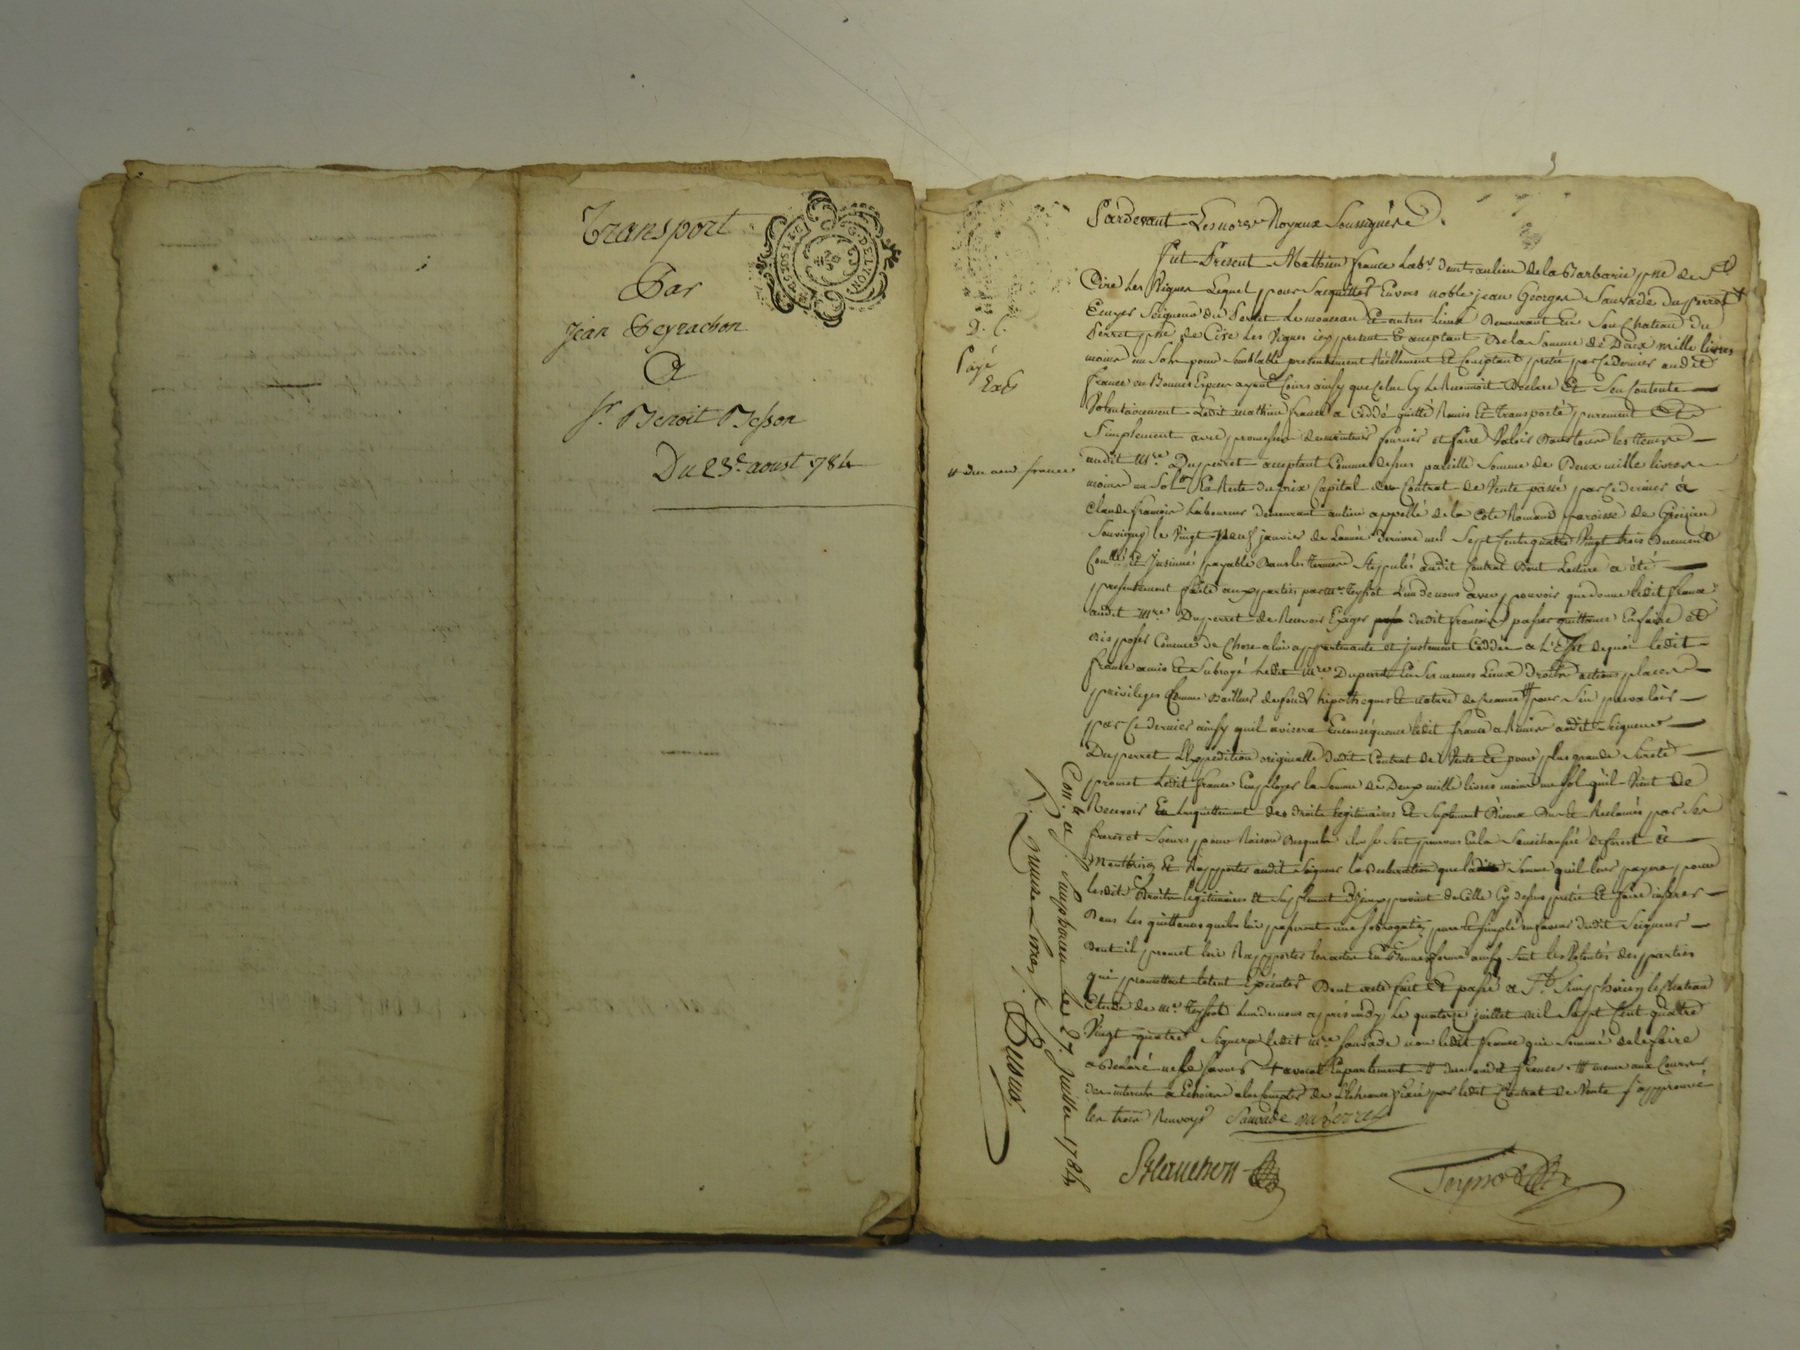 Transport
Par
Jean Peyrachon
A
Sr. Benoit Besson
Du 23e. aoust 784
D. C.
Payé
Exp
# du aud france
Pardevant Les nores Royaux Soussignés
Fut Present Mathieu france Labr demt au lieu de la Barbarie psse de St
Cire Les Vignes Lequel pour Sacquitter Envers noble jean Georges Sauvade Du perret +
Ecuyer Seigneur du Perret Le monceau Et autres Lieux Demeurant En Son Chateau du
Perret psse de Cire Les Vignes icy present Et acceptant De la Somme de Deux mille livres
moins un Sol pour Semblable presentement Réellement Et Comptant prêtée par Ce dernier audit
france en Bonnes Especes ayant Cours ainsy que Celuy cy Le Reconnoit Declare Et Sen Contente
Volontairement Ledit mathieu france a Céddé quitté Remis Et Transporté purement Et
Simplement avec promesse de maintenir fournir et faire Valoir Dans tous les Temps
audit Mre Du perret acceptant Comme dessus pareille Somme de Deux mille livres
moins un Sol Reste du prix Capital du Contrat de Vente passé par Ce dernier à
Claude françois Laboureur demeurant au lieu appellé de la Cote Romand paroisse de Grézieu
Souvigny le Vingt neuf janvier de L'année derniere mil Sept Cents quatre Vingt trois duement
Conllé Et Insinué payable Dans les Termes Stipulés audit Contrat Dont Lecture a été
presentement faite aux parties par me. Teyssot Lun de nous avec pouvoir que donne ledit france
audit Mre Du perret de Recevoir Exiger dudit françois passer quittance En faire et
disposer Comme de Chose a lui appartenante et justement Céddée a L'Effet dequoi ledit
france a mis Et Subrogé Ledit Mre Duperret En Ses memes Lieux Droits actions places
privileges Comme Bailleur de fonds hipotheques Et nature de Creance # pour S'en prevaloir
par Ce dernier ainsy quil avisera En consequence ledit france a Remis audit Seigneur
Du perret L'Expedition originalle dudit Contrat de Vente Et pour plus grande Sureté
promet Ledit france Employer la Somme de Deux mille livres moins un Sol quil Vient de
Recevoir En Lacquittement des droits légitimaires Et Suplement Diceux Reclamés par Ses
freres et Soeurs pour Raison Desquels ils Se Sont pourvus En la Senechaussée de forest à
Montbrison Et Rapporter audit Seigneur la Declaration que ladite Somme quil leur payera pour
lesdits Droits legitimaires Et Suplement D'iceux provient de Celle Cy dessus pretée Et faire inserer
Dans Les quittances quils lui passeront une Subrogation pure Et Simple En faveur dudit Seigneur
Dont il promet lui Rapporter les actes En Bonne forme ainsy Sont les Volontés des parties
qui promettent letout Executer Dont acte fait Et passé a St. Simphorien le Chateau
Etude de Me. Teyssot Lun de nous après midy Le quatorze juillet mil Sept Cent quatre
Vingt quatre Signera ledit Mre Sauvade non ledit france qui Sommé dele faire
a Declaré ne le Savoir + avocat En parlement # dudit france # meme aux Cours
des interets a Echeoir a Compter de L'Echeance fixée par ledit Contrat de Vente J'approuve
les trois Renvoys Sauvade Duperret
Blanchon
Teyssot
Conllé a St. Simphorien Le 27. juillet 1784
R. neuf Livres